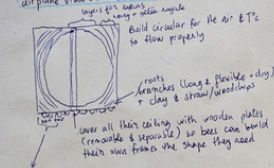 airplane view
layers for extra
honey + pollen supplie
Build circular for the air & T°C
to flow properly
roots
branches (Long & flexible + dry)
+ clay & straw/woodchips
cover all their ceiling with wooden plates
(removable & separable) so bees can build
their own frames the shape they need